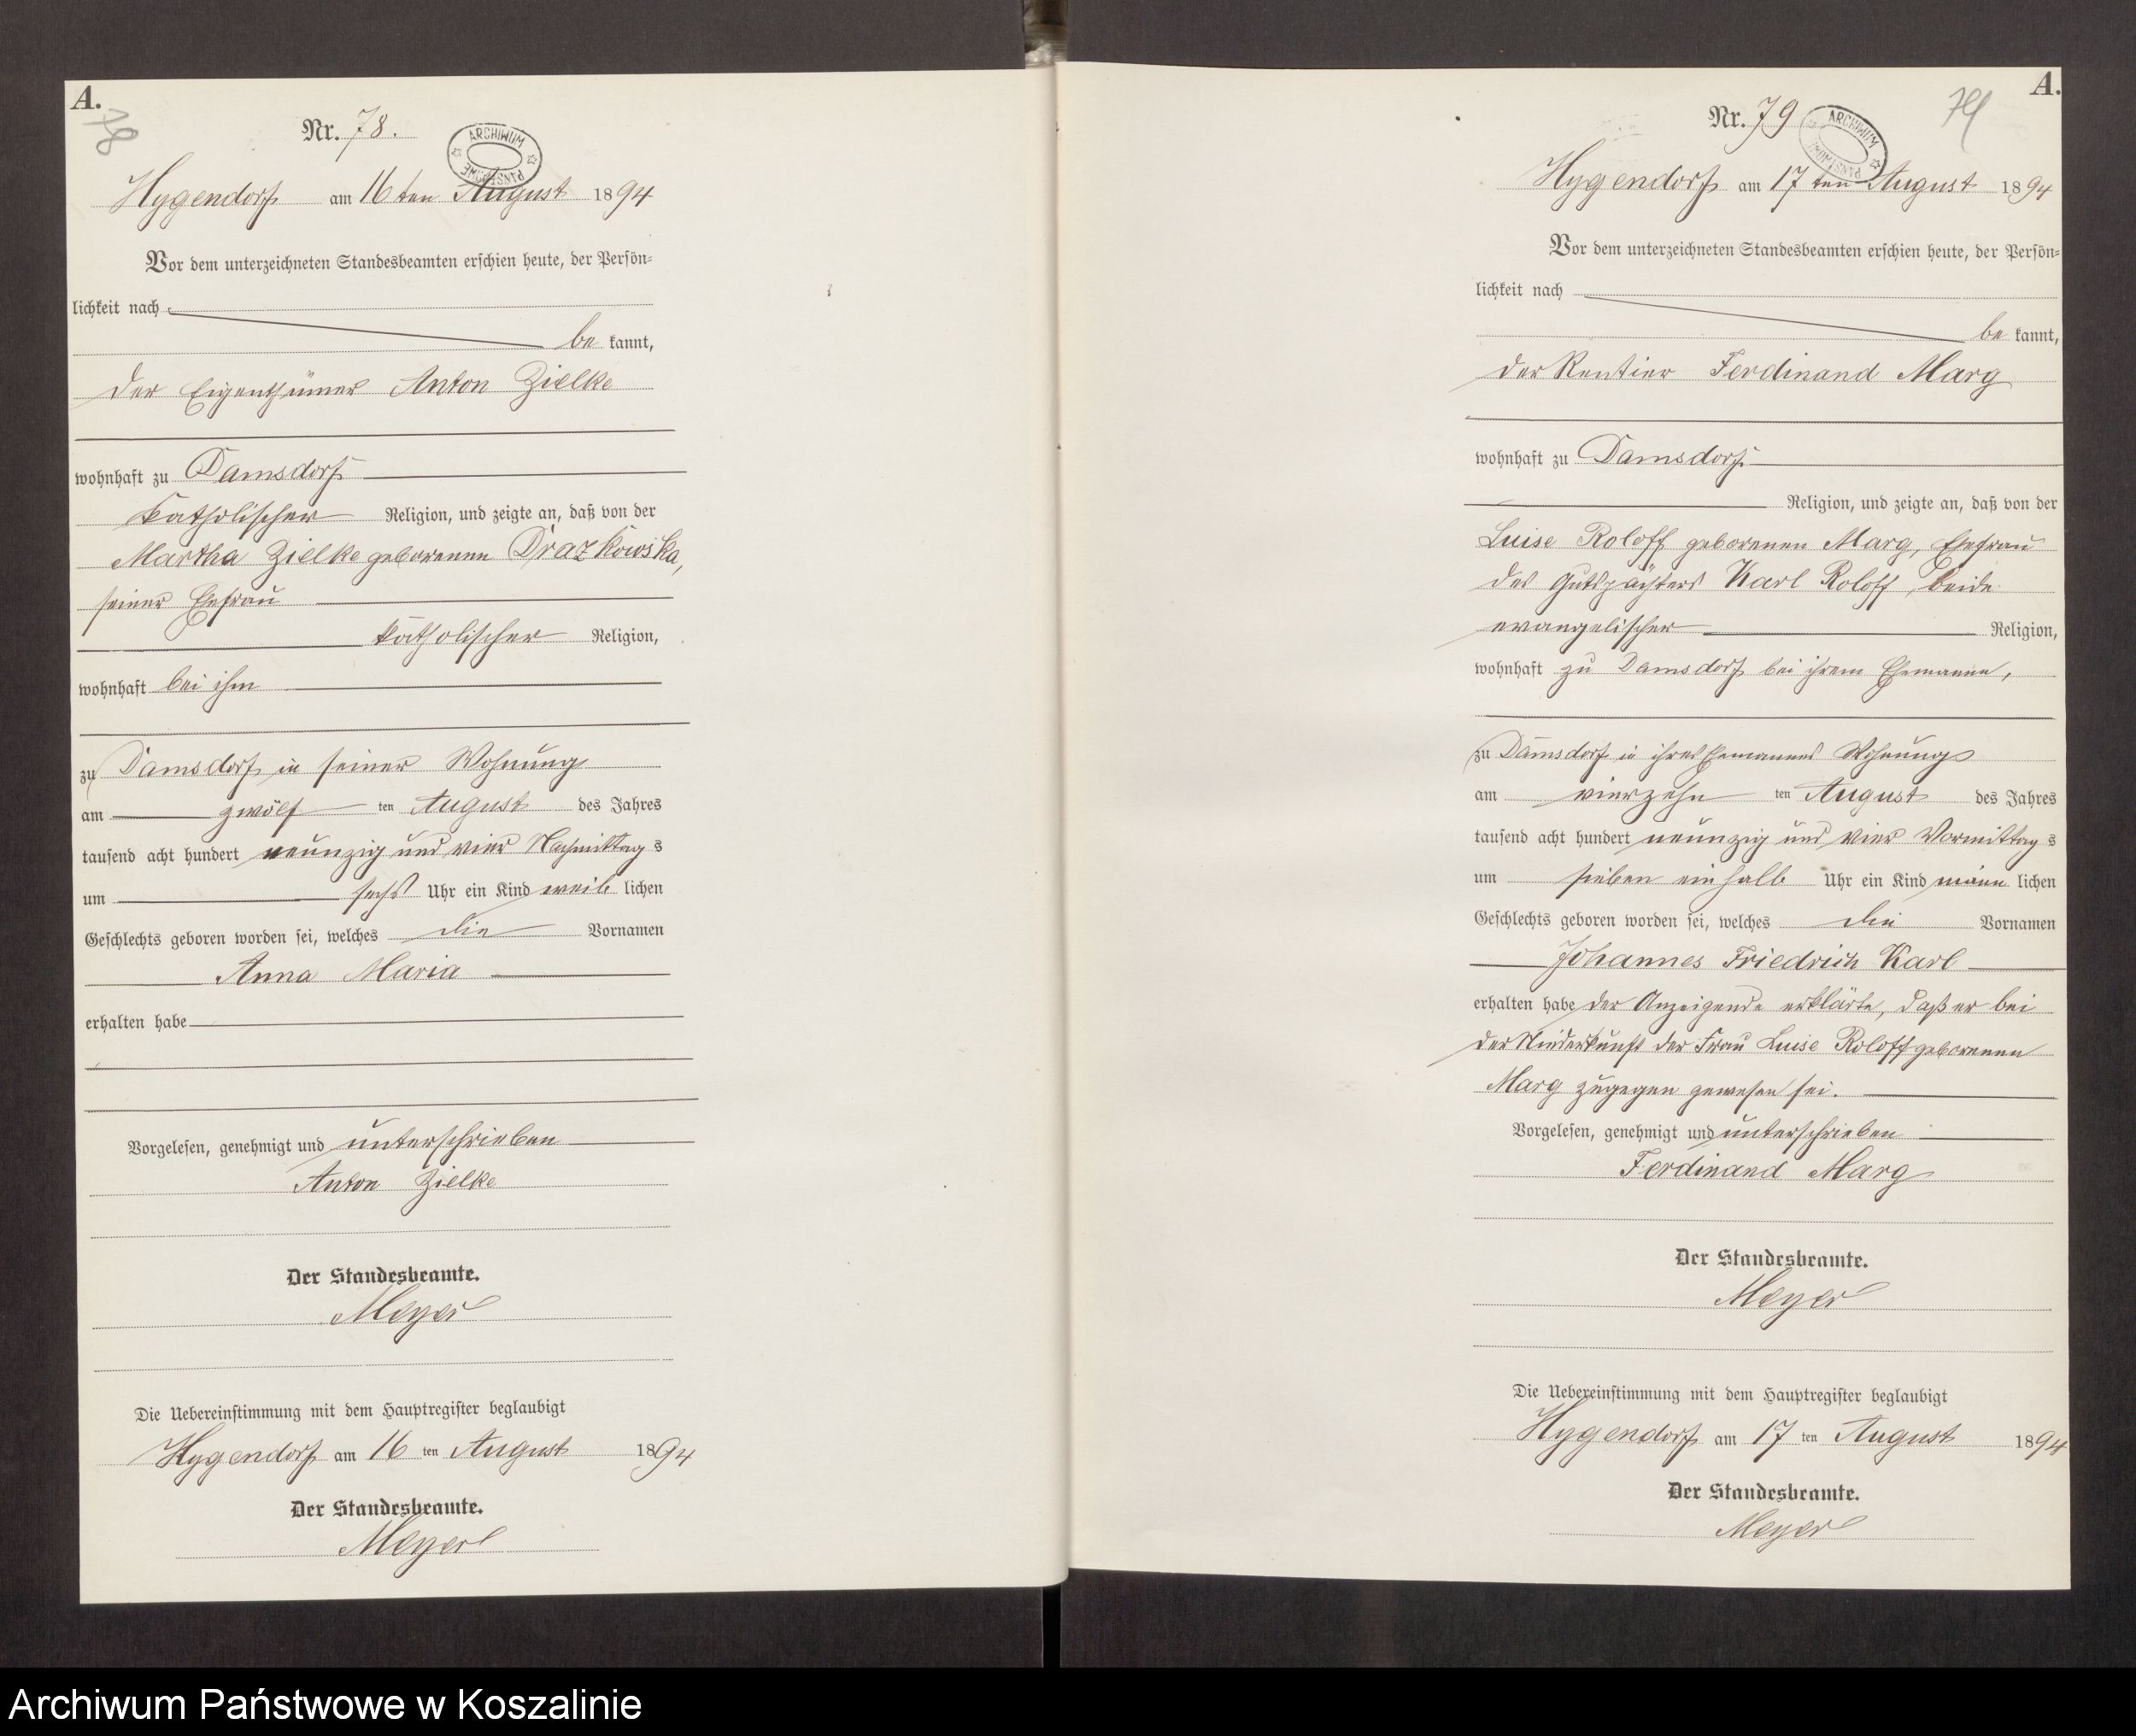 A.
78
Nr. 78.
ARCHIWUM PAŃSTWOWE
Hygendorf am 16ten August 1894
Vor dem unterzeichneten Standesbeamten erschien heute, der Persön-
lichkeit nach
be kannt,
der Eigenthümer Anton Zielke
wohnhaft zu Damsdorf
katholischer Religion, und zeigte an, daß von der
Martha Zielke geborenen Drazkowska,
seiner Ehefrau
katholischer Religion,
wohnhaft bei ihm
zu Damsdorf in seiner Wohnung
am zwölf ten August des Jahres
tausend acht hundert neunzig und vier Nachmittag s
um sechs Uhr ein Kind weib lichen
Geschlechts geboren worden sei, welches die Vornamen
Anna Maria
erhalten habe
Vorgelesen, genehmigt und unterschrieben
Anton Zielke
Der Standesbeamte.
Meyer
Die Uebereinstimmung mit dem Hauptregister beglaubigt
Hygendorf am 16 ten August 1894
Der Standesbeamte.
Meyer
A.
79
Nr. 79
ARCHIWUM PAŃSTWOWE
Hygendorf am 17 ten August 1894
Vor dem unterzeichneten Standesbeamten erschien heute, der Persön-
lichkeit nach
be kannt,
der Rentier Ferdinand Marg
wohnhaft zu Damsdorf
Religion, und zeigte an, daß von der
Luise Roloff geborenen Marg, Ehefrau
des Gutspächters Karl Roloff, beide
evangelischer Religion,
wohnhaft zu Damsdorf bei ihrem Ehemanne,
zu Damsdorf in ihres Ehemannes Wohnung
am vierzehn ten August des Jahres
tausend acht hundert neunzig und vier Vormittag s
um sieben einhalb Uhr ein Kind männ lichen
Geschlechts geboren worden sei, welches die Vornamen
Johannes Friedrich Karl
erhalten habe der Anzeigende erklärte, daß er bei
der Niederkunft der Frau Luise Roloff geborenen
Marg zugegen gewesen sei.
Vorgelesen, genehmigt und unterschrieben
Ferdinand Marg
Der Standesbeamte.
Meyer
Die Uebereinstimmung mit dem Hauptregister beglaubigt
Hygendorf am 17 ten August 1894
Der Standesbeamte.
Meyer
Archiwum Państwowe w Koszalinie